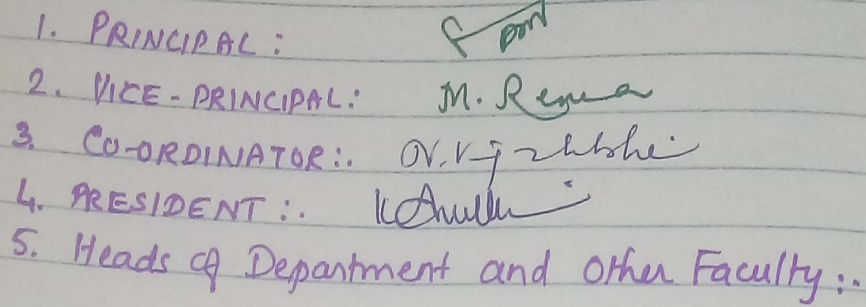 1. PRINCIPAL:
2. VICE-PRINCIPAL: M. Renuka
3. CO-ORDINATOR:.
4. PRESIDENT:.
5. Heads of Department and Other Faculty:.